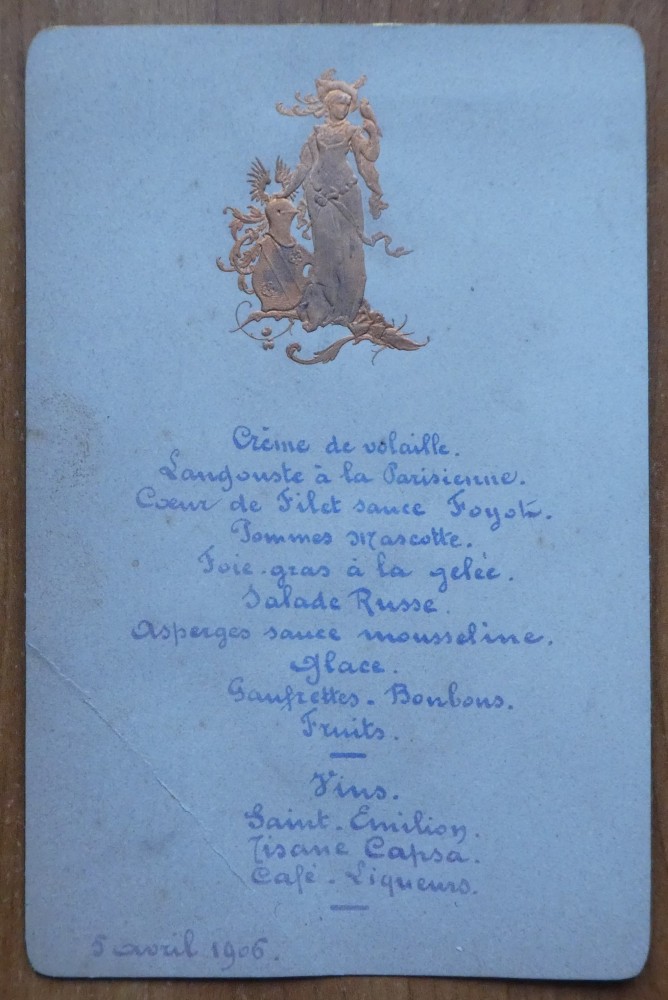 Crème de volaille.
Langouste à la Parisienne.
Cœur de Filet sauce Foyot.
Pommes Mascotte.
Foie-gras à la gelée.
Salade Russe.
Asperges sauce mousseline.
Glace.
Gaufrettes - Bonbons.
Fruits.
Vins.
Saint-Emilion.
Tisane Capsa.
Café - Liqueurs.
5 avril 1906.